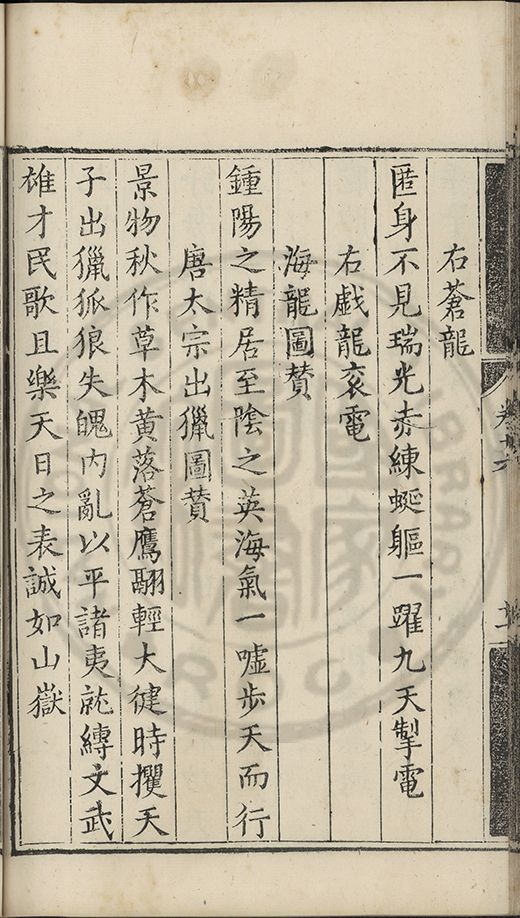 右蒼龍
匿身不見瑞光赤練蜿軀一躍九天掣電
右戯龍衮電
海龍圖贊
鍾陽之精居至陰之英海氣一嘘步天而行
唐太宗出獵圖贊
景物秋作草木黄落蒼鷹翮輕大健時攫天
子出獵狐狼失魄内亂以平諸夷就縛文武
雄才民歌且樂天日之表誠如山嶽
卷十六